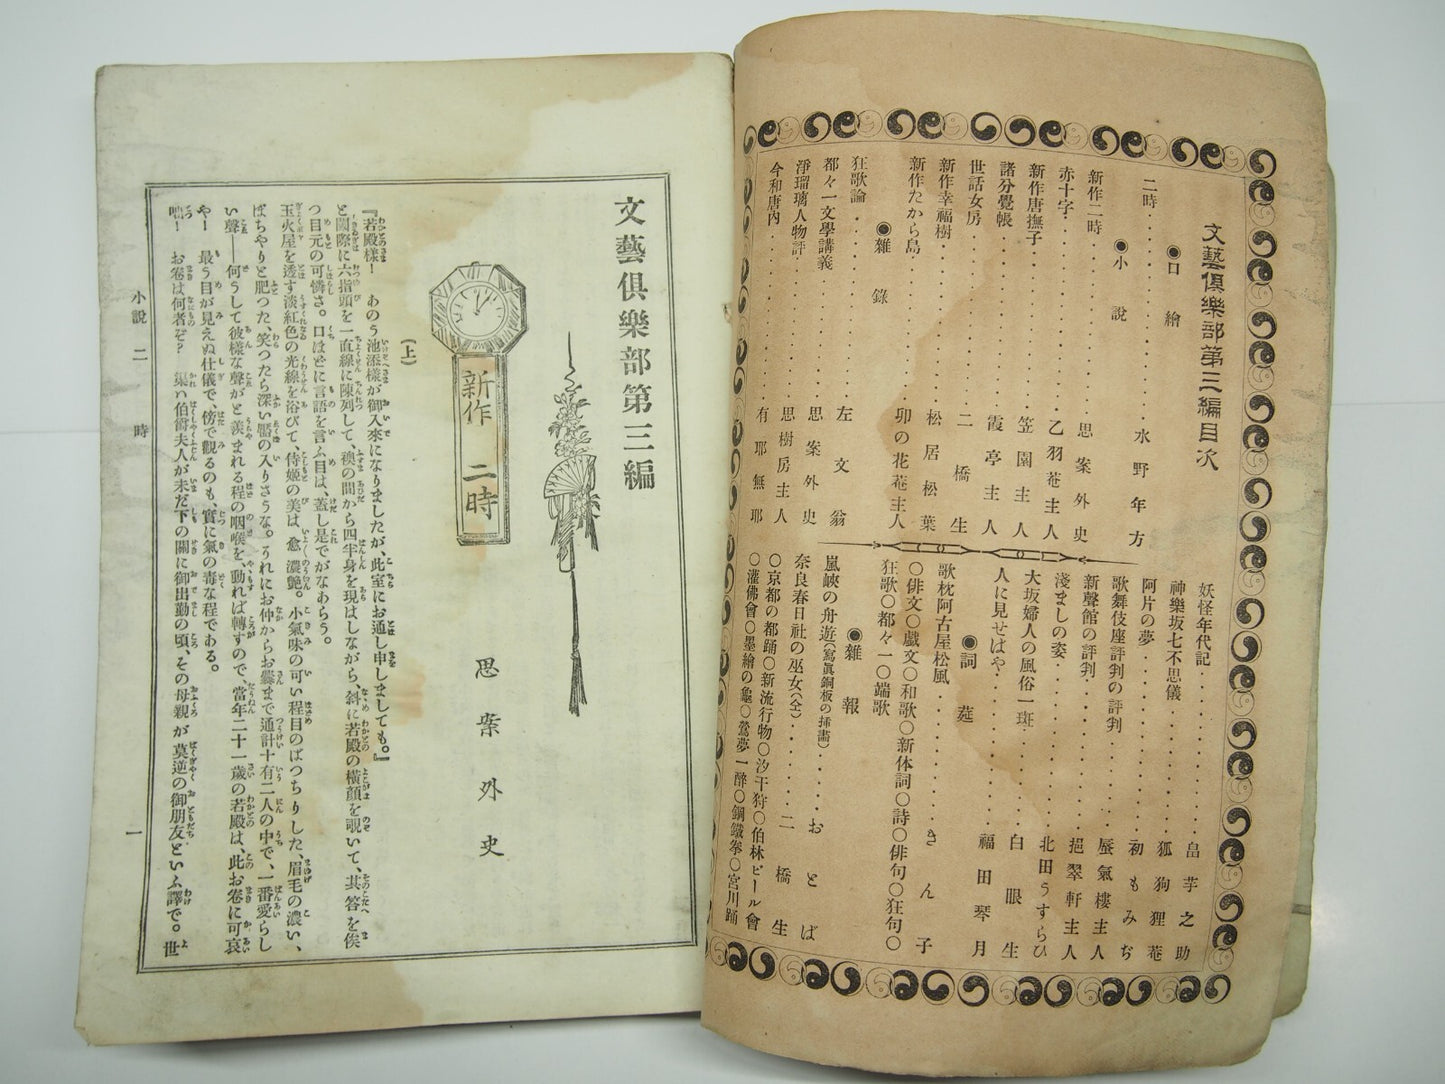 文藝倶樂部第三編目次
●口繪
二時 水野年方
●小說
新作二時 思案外史
赤十字 乙羽菴主人
新作唐撫子 笠園主人
諸分覺帳 霞亭主人
世話女房 二橋生
新作幸福樹 松居松葉
新作たから島 卯の花菴主人
●雜錄
狂歌論 左文翁
都々一文學講義 思案外史
淨瑠璃人物評 思樹房主人
今和唐内 有耶無耶
妖怪年代記 畠芋之助
神樂坂七不思儀 狐狗狸菴
阿片の夢 初もみぢ
歌舞伎座評判の評判 蜃氣樓主人
新聲館の評判 挹翠軒主人
淺ましの姿 北田うすらひ
大坂婦人の風俗一斑 白眼生
人に見せはや 福田琴月
●詞莚
歌枕阿古屋松風 きん子
○俳文○戲文○和歌○新体詞○詩○俳句○狂句○
狂歌○都々一○端歌
●雜報
嵐峽の舟遊(寫眞銅板の挿畵) おとば
奈良春日社の巫女(仝) 二橋生
○京都の都踊○新流行物○汐干狩○伯林ビール會
○灌佛會○墨繪の龜○鶯夢一醉○鋼鐵拳○宮川踊
文藝倶樂部第三編
新作 二時
思案外史
(上)
『若殿樣！ あのう池添樣が御入來になりましたが、此室にお通し申しましても。』
と閾際に六指頭を一直線に陳列して、襖の間から四半身を現はしながら、斜に若殿の橫顏を覗いて、其答を俟
つ目元の可憐さ。口ほどに言語を言ふ目は、蓋し是でがなあらう。
玉火屋を透す淡紅色の光線を浴びて、侍姬の美は、愈濃艶。小氣味の可い程目のぱつちりした、眉毛の濃い、
ぽちやりと肥つた、笑つたら深い靨の入りさうな。されにお仲からお爨まで通計十有二人の中で、一番愛らし
い聲――何うして彼樣な聲がと羨まれる程の咽喉を、動れば轉すので、當年二十一歲の若殿は、此お卷に可哀
や！ 最う目が見えぬ仕儀で、傍で觀るのも、實に氣の毒な程である。
咄！ お卷は何者ぞ？ 渠ハ伯爵夫人が未だ下の關に御出勤の頃、その母親が莫逆の御朋友といふ譯で。世
小說 二時
一